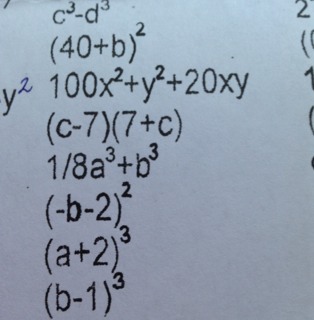 c³-d³
(40+b)²
y² 100x²+y²+20xy
(c-7)(7+c)
1/8a³+b³
(-b-2)²
(a+2)³
(b-1)³
2